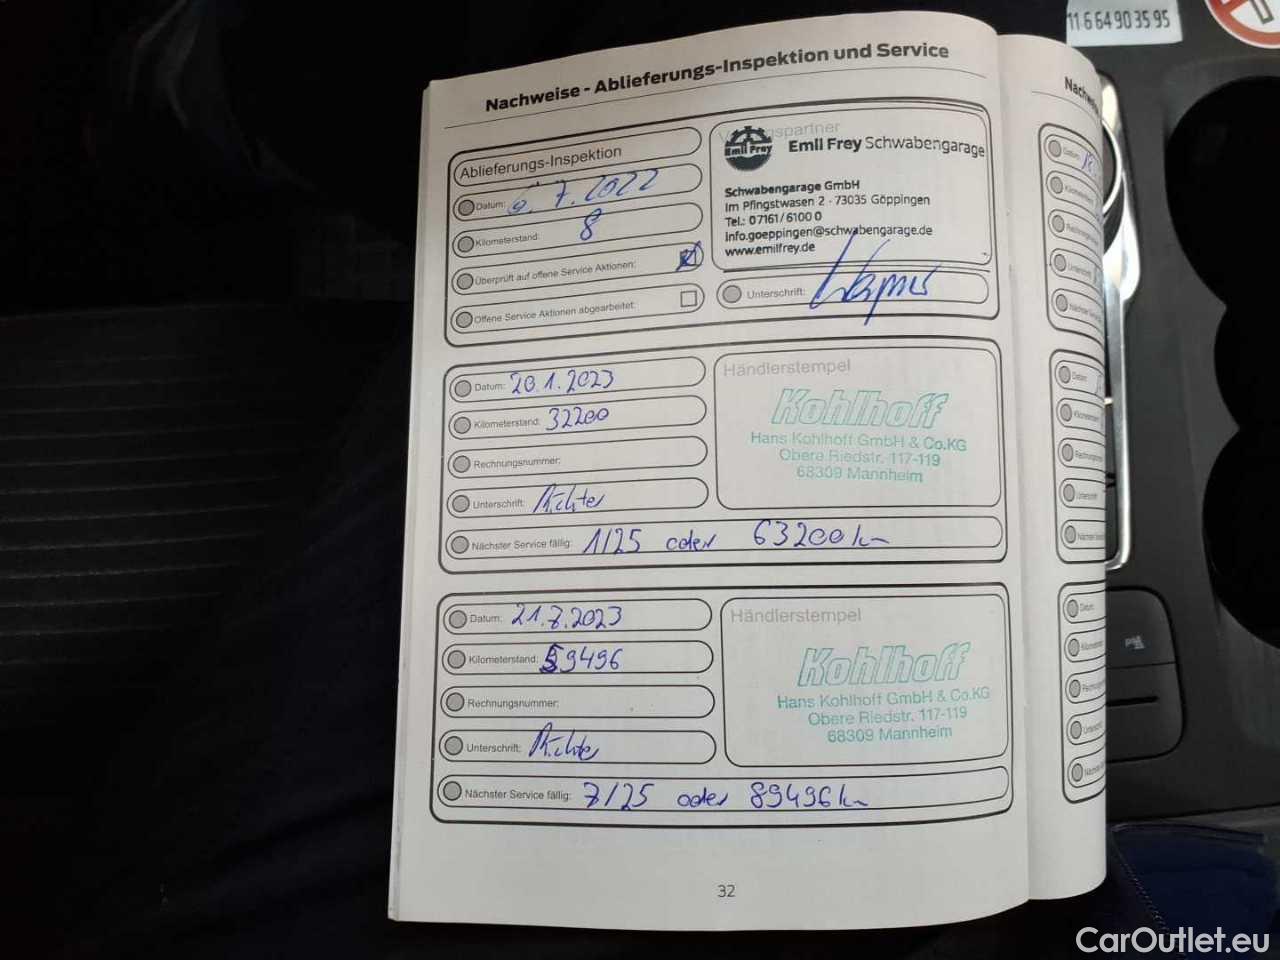 11 6 64 90 35 95
Nachweise - Ablieferungs-Inspektion und Service
Ablieferungs-Inspektion
Datum: 6. 7. 2022
Kilometerstand: 8
Überprüft auf offene Service Aktionen:
Offene Service Aktionen abgearbeitet:
Emil Frey
Emil Frey Schwabengarage
Schwabengarage GmbH
Im Pfingstwasen 2 - 73035 Göppingen
Tel.: 07161/6100 0
info.goeppingen@schwabengarage.de
www.emilfrey.de
Unterschrift:
Datum: 20.1.2023
Kilometerstand: 32200
Rechnungsnummer:
Unterschrift: Richter
Nächster Service fällig: 1/25 oder 63200km
Händlerstempel
Kohlhoff
Hans Kohlhoff GmbH & Co.KG
Obere Riedstr. 117-119
68309 Mannheim
Datum: 21.7.2023
Kilometerstand: 59496
Rechnungsnummer:
Unterschrift: Richter
Nächster Service fällig: 7/25 oder 89496km
Händlerstempel
Kohlhoff
Hans Kohlhoff GmbH & Co.KG
Obere Riedstr. 117-119
68309 Mannheim
32
Datum:
Unterschrift
Datum:
Unterschrift
Datum:
CarOutlet.eu